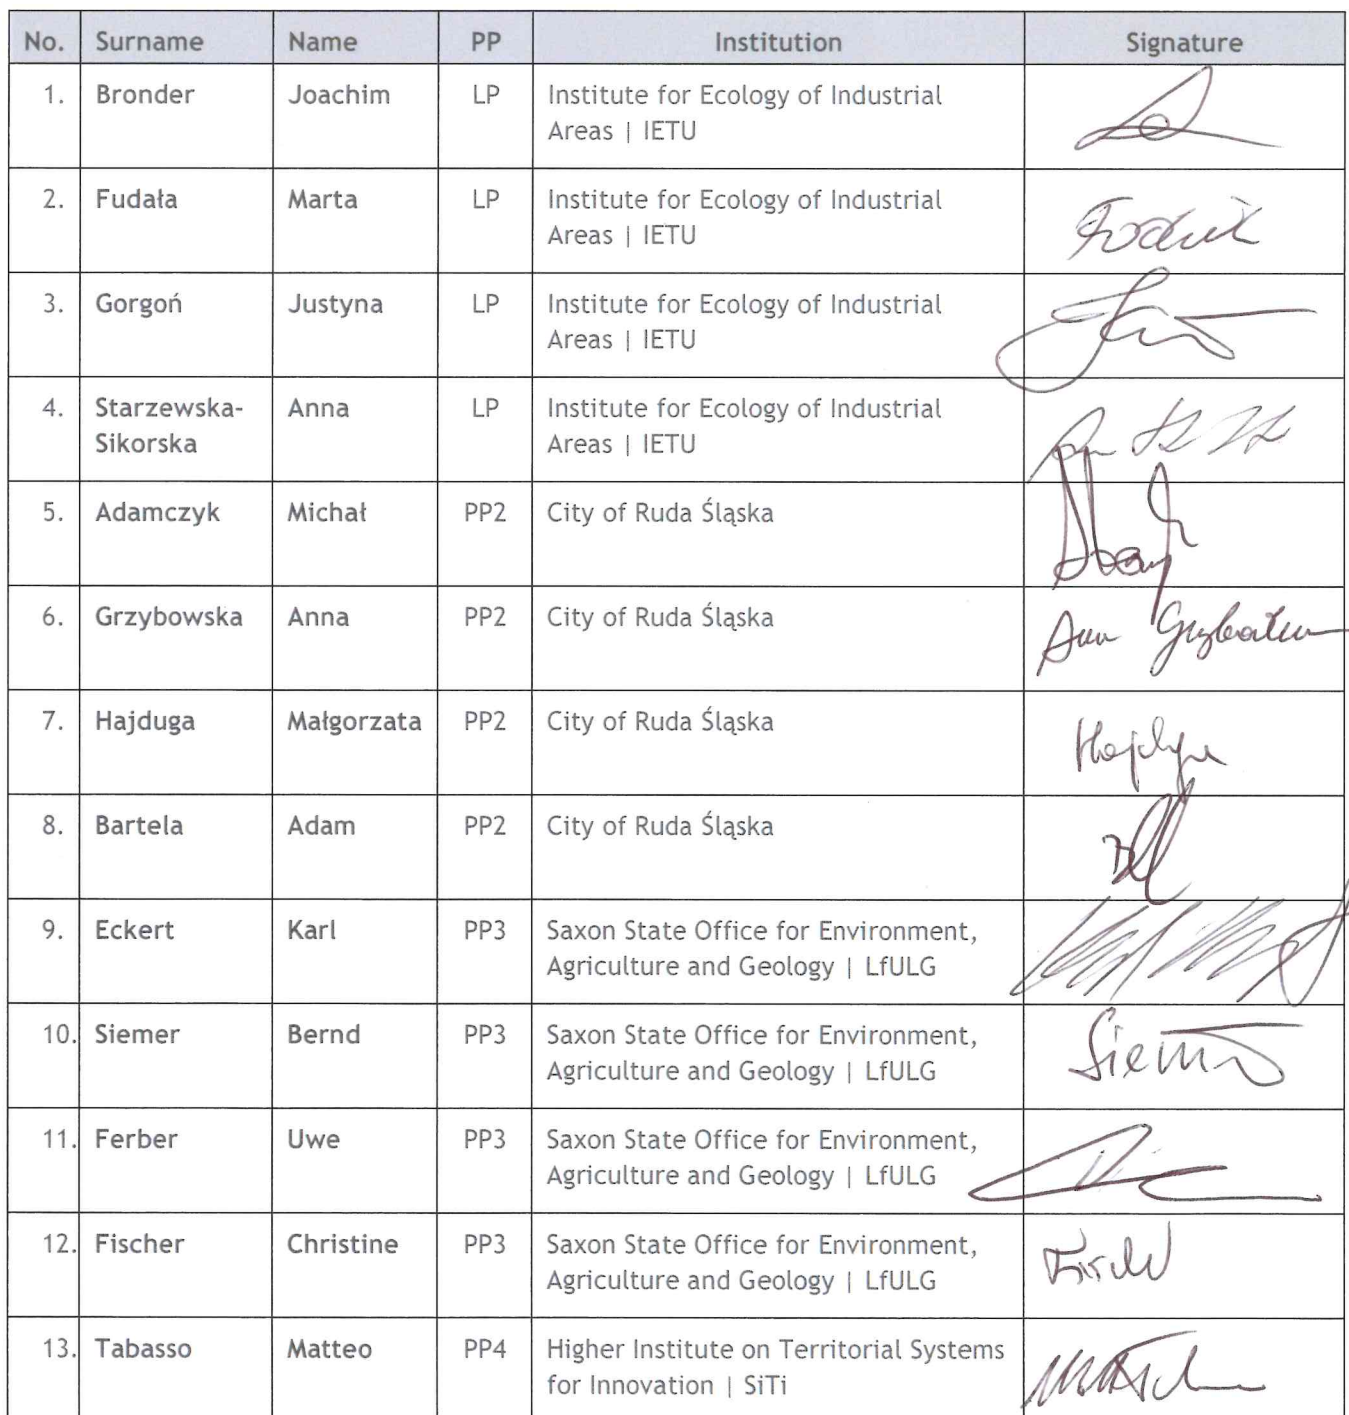 No. Surname Name PP Institution Signature
1. Bronder Joachim LP Institute for Ecology of Industrial
Areas | IETU
2. Fudała Marta LP Institute for Ecology of Industrial
Areas | IETU
3. Gorgoń Justyna LP Institute for Ecology of Industrial
Areas | IETU
4. Starzewska- Anna LP Institute for Ecology of Industrial
Sikorska Areas | IETU
5. Adamczyk Michał PP2 City of Ruda Śląska
6. Grzybowska Anna PP2 City of Ruda Śląska
7. Hajduga Małgorzata PP2 City of Ruda Śląska
8. Bartela Adam PP2 City of Ruda Śląska
9. Eckert Karl PP3 Saxon State Office for Environment,
Agriculture and Geology | LfULG
10. Siemer Bernd PP3 Saxon State Office for Environment,
Agriculture and Geology | LfULG
11. Ferber Uwe PP3 Saxon State Office for Environment,
Agriculture and Geology | LfULG
12. Fischer Christine PP3 Saxon State Office for Environment,
Agriculture and Geology | LfULG
13. Tabasso Matteo PP4 Higher Institute on Territorial Systems
for Innovation | SiTi